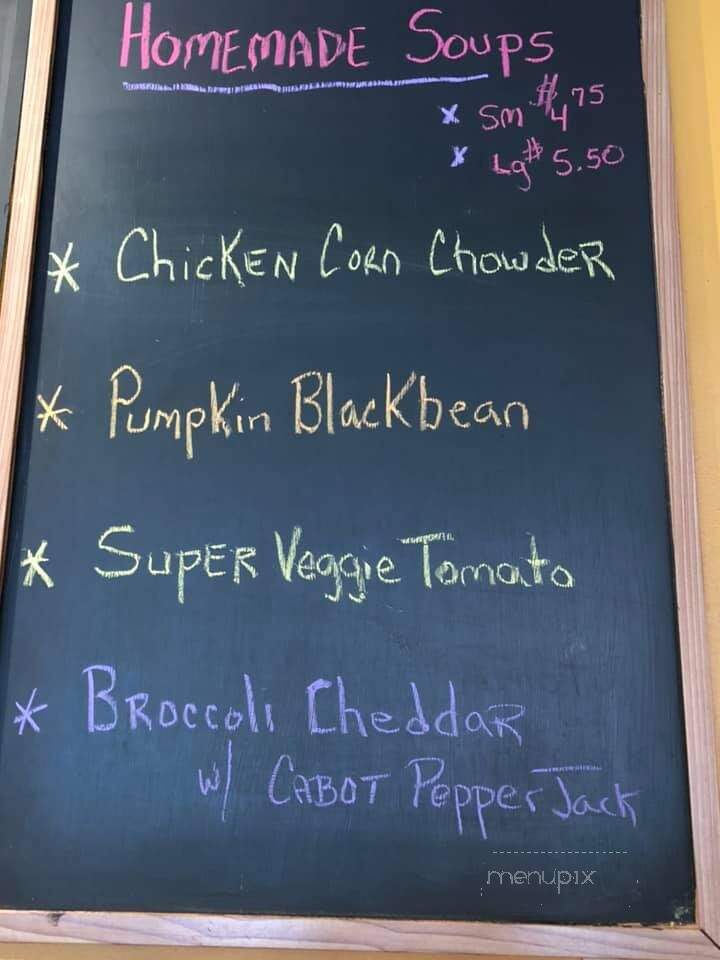 Homemade Soups
x Sm $4.75
x Lg $5.50
* Chicken Corn Chowder
* Pumpkin Blackbean
* Super Veggie Tomato
* Broccoli Cheddar
w/ Cabot Pepper Jack
menupix